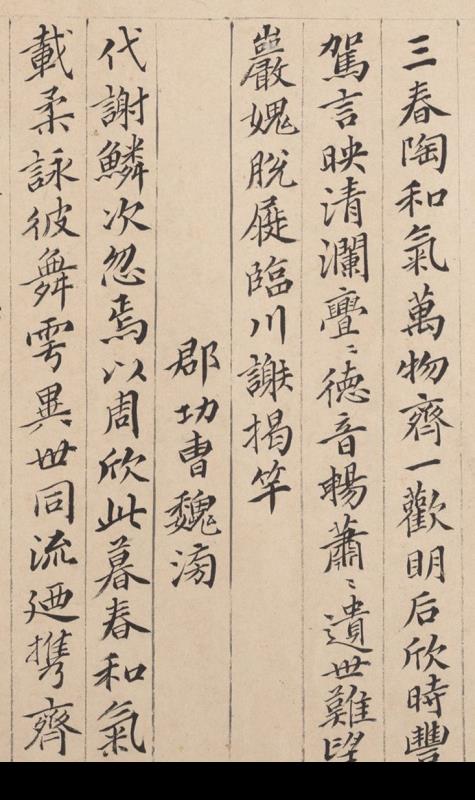 三春陶和氣萬物齊一歡明后欣時豐
駕言映清瀾亹〻德音暢蕭〻遺世難望
巖媿脫屣臨川謝揭竿
郡功曹魏滂
代謝鱗次忽焉以周欣此暮春和氣
載柔詠彼舞雩異世同流迺携齊